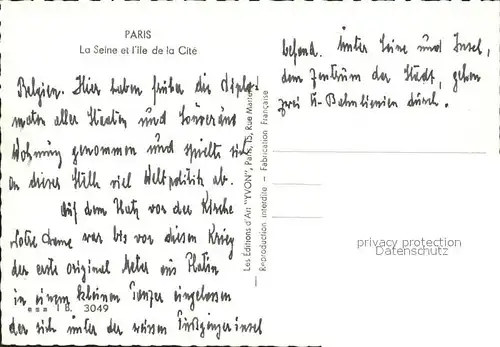 PARIS
La Seine et l'île de la Cité
Belgien. Hier haben früher die Diplo-
maten aller Staaten und Souveräns
Wohnung genommen und spielte sich
an dieser Stelle viel Weltpolitik ab.
Auf dem Platz vor der Kirche
Notre Dame war bis vor diesen Krieg
der erste original Meter aus Platin
in einem kleinen Panzer eingelassen
der sich unter der weissen Fußgängerinsel
1 B. 3049
befand. Unter Seine und Insel,
dem Zentrum der Stadt, gehen
zwei U-Bahnlinien durch.
Les Éditions d'Art "YVON", Paris, 15, Rue Martel
Reproduction interdite - Fabrication Française
privacy protection
Datenschutz